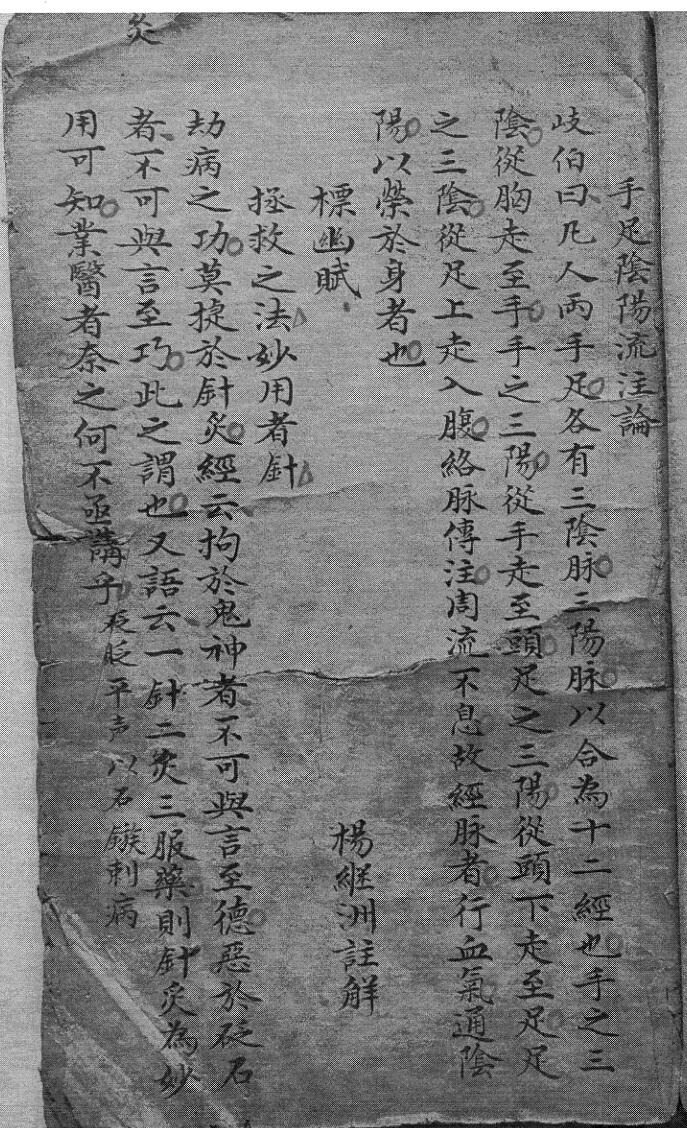 手足陰陽流注論
岐伯曰凡人兩手足各有三陰脉三陽脉以合為十二經也手之三
陰從胸走至手手之三陽從手走至頭足之三陽從頭下走至足足
之三陰從足上走入腹絡脉傳注周流不息故經脉者行血氣通陰
陽以榮於身者也
標幽賦 楊継洲註解
拯救之法妙用者針
劫病之功莫捷於針灸經云拘於鬼神者不可與言至德惡於砭石
者不可與言至巧此之謂也又語云一針二灸三服藥則針灸為妙
用可知業醫者奈之何不亟講乎 砭貶平声以石鏃刺病
灸